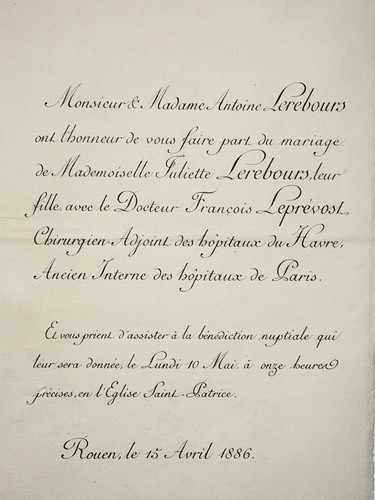 Monsieur & Madame Antoine Lerebours
ont l'honneur de vous faire part du mariage
de Mademoiselle Juliette Lerebours, leur
fille avec le Docteur François Leprévost,
Chirurgien-Adjoint des hôpitaux du Havre,
Ancien Interne des hôpitaux de Paris.
Et vous prient d'assister à la bénédiction nuptiale qui
leur sera donnée, le Lundi 10 Mai, à onze heures
précises, en l'Eglise Saint-Patrice.
Rouen, le 15 Avril 1886.